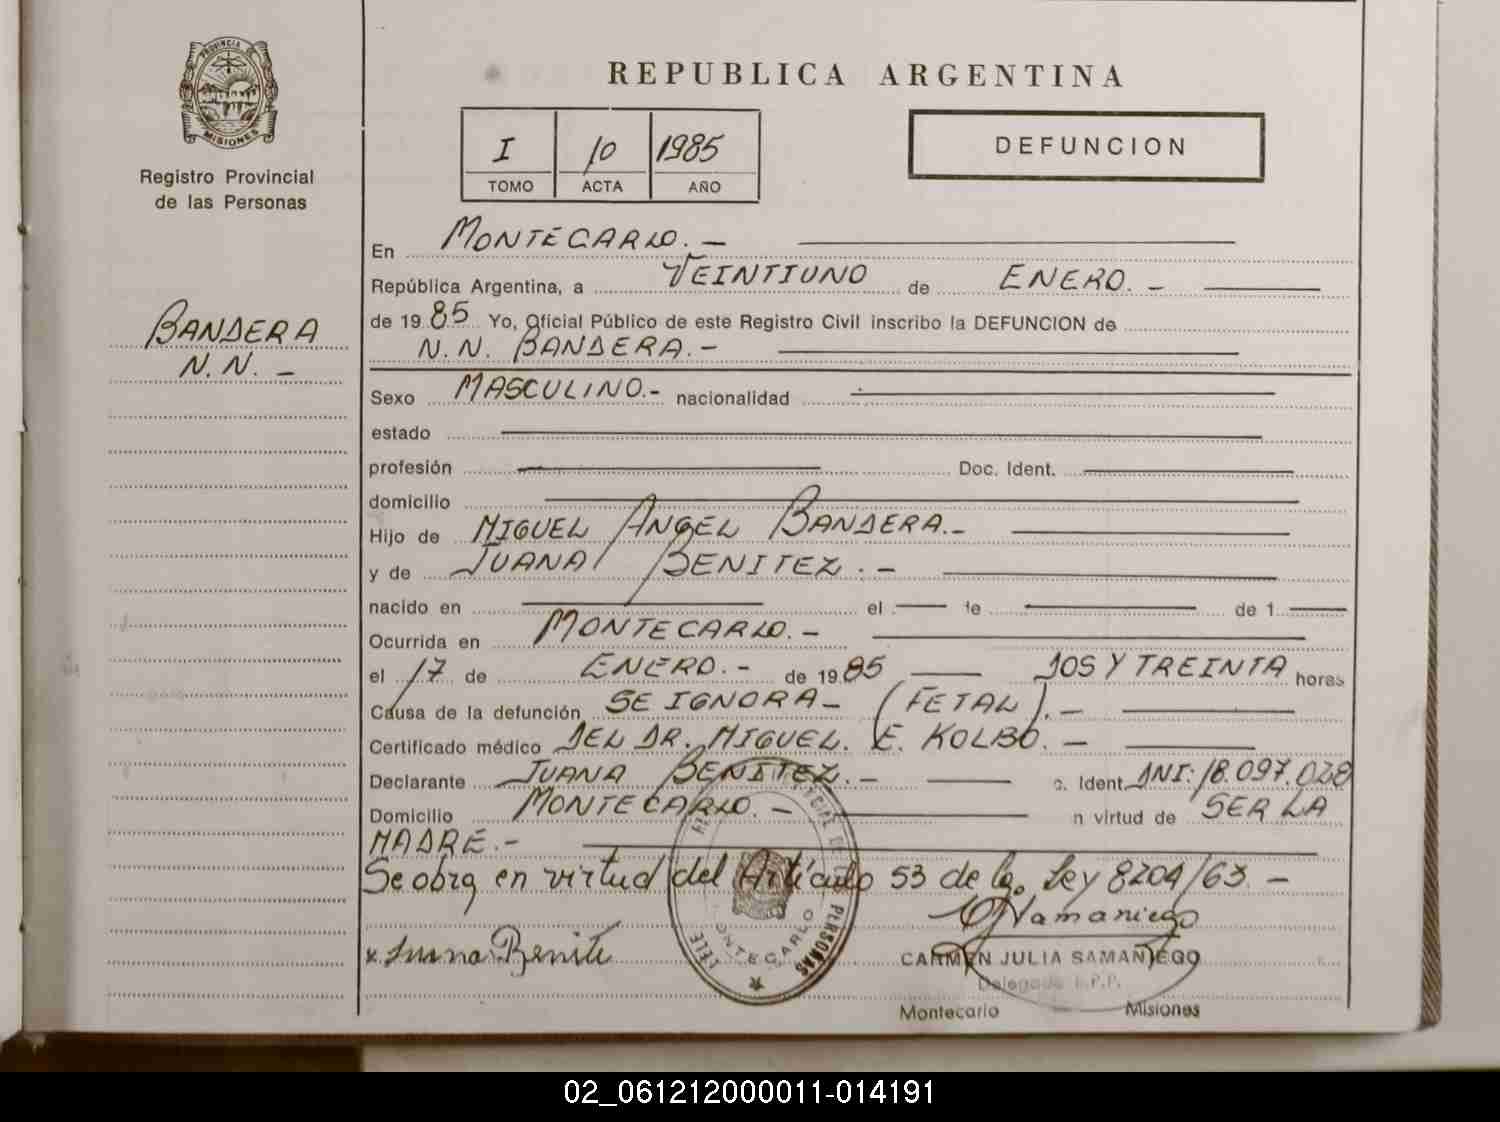 PROVINCIA DE
MISIONES
Registro Provincial
de las Personas
BANDERA
N.N. -
REPUBLICA ARGENTINA
I 10 1985
TOMO ACTA AÑO
DEFUNCION
En MONTECARLO. -
República Argentina, a VEINTIUNO de ENERO. -
de 1985 Yo, Oficial Público de este Registro Civil inscribo la DEFUNCION de
N.N. BANDERA. -
Sexo MASCULINO. - nacionalidad
estado
profesión Doc. Ident.
domicilio
Hijo de MIGUEL ANGEL BANDERA. -
y de JUANA BENITEZ. -
nacido en el de de 1
Ocurrida en MONTECARLO. -
el 17 de ENERO. - de 1985 DOS Y TREINTA horas
Causa de la defunción SE IGNORA - (FETAL). -
Certificado médico DEL DR. MIGUEL. E. KOLBO. -
Declarante JUANA BENITEZ. - c. Ident. DNI: 18.097.028
Domicilio MONTECARLO. - n virtud de SER LA
MADRE. -
Se obra en virtud del Artículo 53 de la Ley 8204/63. -
x Juana Benite
PERSONAS
MONTECARLO
CARMEN JULIA SAMANIEGO
Delegada R.P.P.
Montecarlo Misiones
02_061212000011-014191